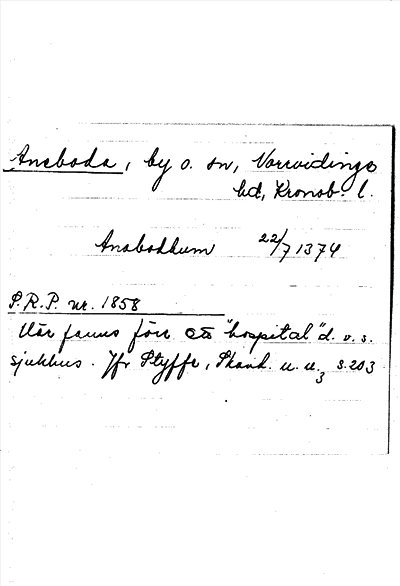 Aneboda, by o. sn, Norrvidinge
hd, Kronob. l.
Anabodhum 22/7 1374
S.R.P. nr. 1858
Här fanns förr ett "hospital" d. v. s.
sjukhus. Jfr Styffe, Skand. u. u.3 s. 203